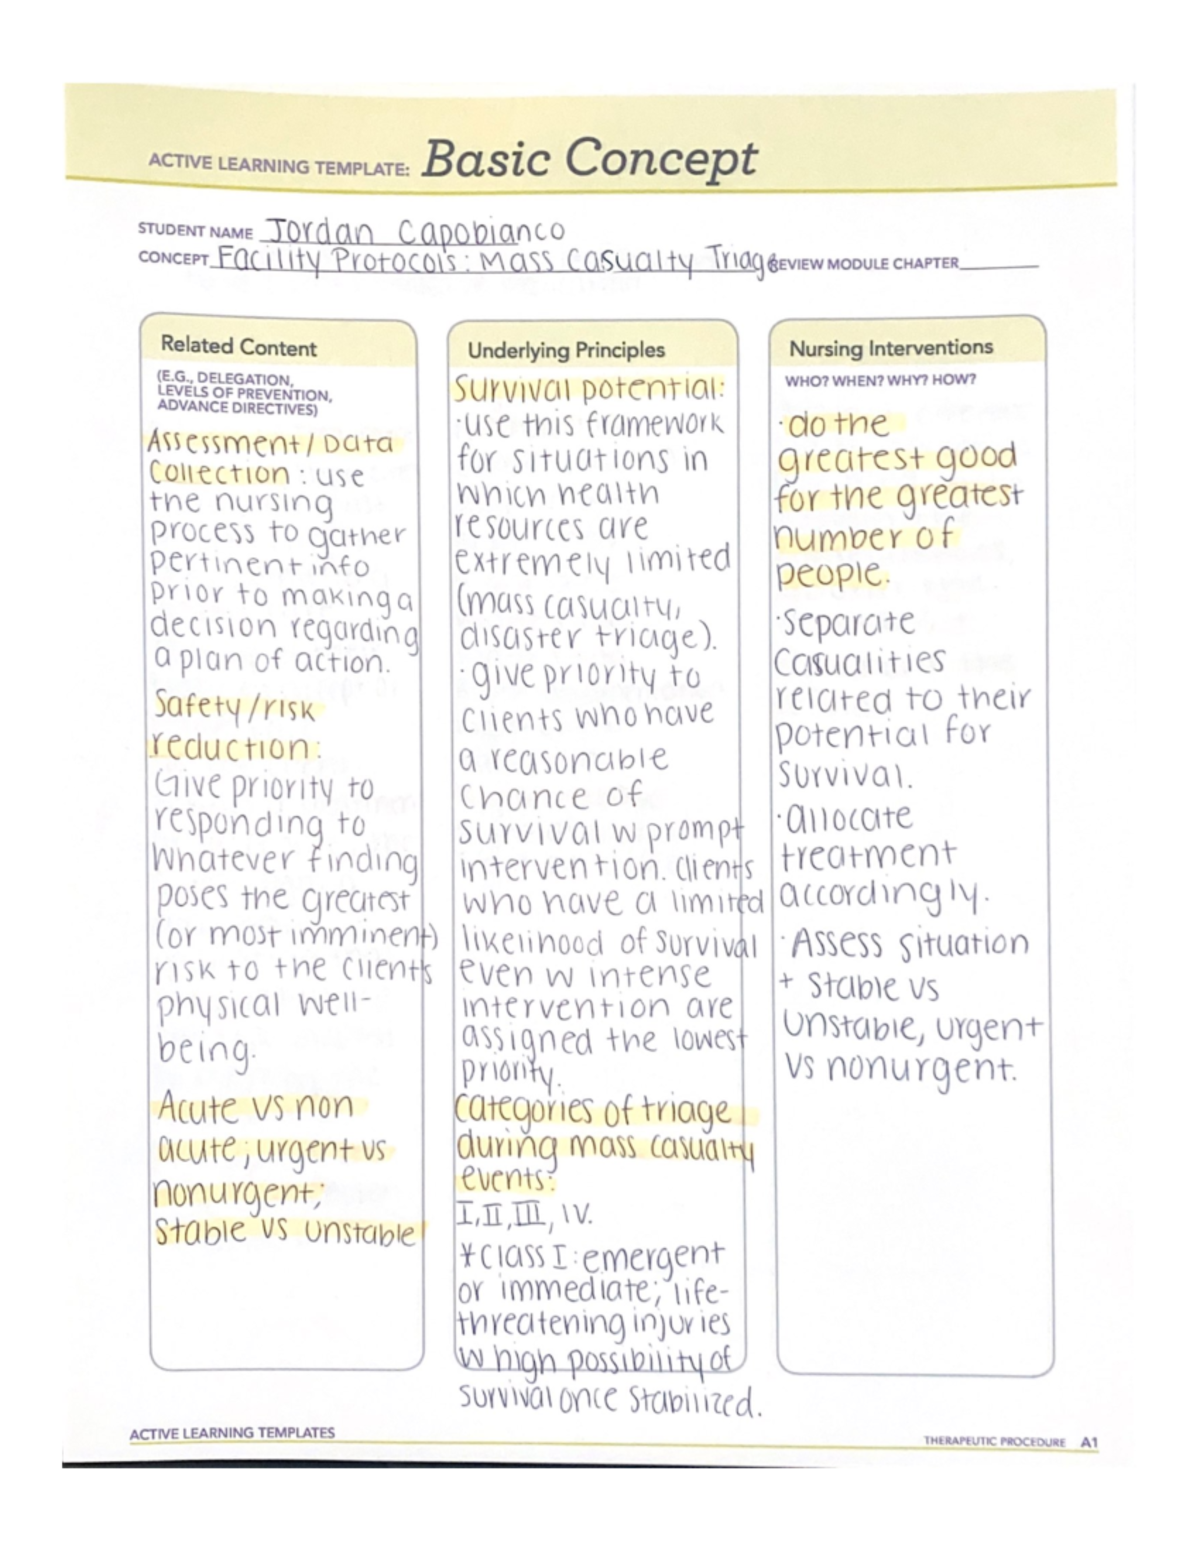 ACTIVE LEARNING TEMPLATE: Basic Concept
STUDENT NAME Jordan Capobianco
CONCEPT Facility Protocols: Mass Casualty Triage REVIEW MODULE CHAPTER
Related Content
(E.G., DELEGATION,
LEVELS OF PREVENTION,
ADVANCE DIRECTIVES)
Assessment/Data
Collection: use
the nursing
process to gather
pertinent info
prior to making a
decision regarding
a plan of action.
Safety/risk
reduction:
Give priority to
responding to
whatever finding
poses the greatest
(or most imminent)
risk to the clients
physical well-
being.
Acute vs non
acute; urgent vs
nonurgent;
stable vs unstable
Underlying Principles
Survival potential:
·use this framework
for situations in
which health
resources are
extremely limited
(mass casualty,
disaster triage).
·give priority to
clients who have
a reasonable
chance of
survival w prompt
intervention. Clients
who have a limited
likelihood of survival
even w intense
intervention are
assigned the lowest
priority.
Categories of triage
during mass casualty
events:
I, II, III, IV.
*Class I: emergent
or immediate; life-
threatening injuries
w high possibility of
survival once stabilized.
Nursing Interventions
WHO? WHEN? WHY? HOW?
·do the
greatest good
for the greatest
number of
people.
·Separate
Casualities
related to their
potential for
survival.
·allocate
treatment
accordingly.
·Assess situation
+ Stable vs
Unstable, urgent
vs nonurgent.
ACTIVE LEARNING TEMPLATES
THERAPEUTIC PROCEDURE A1